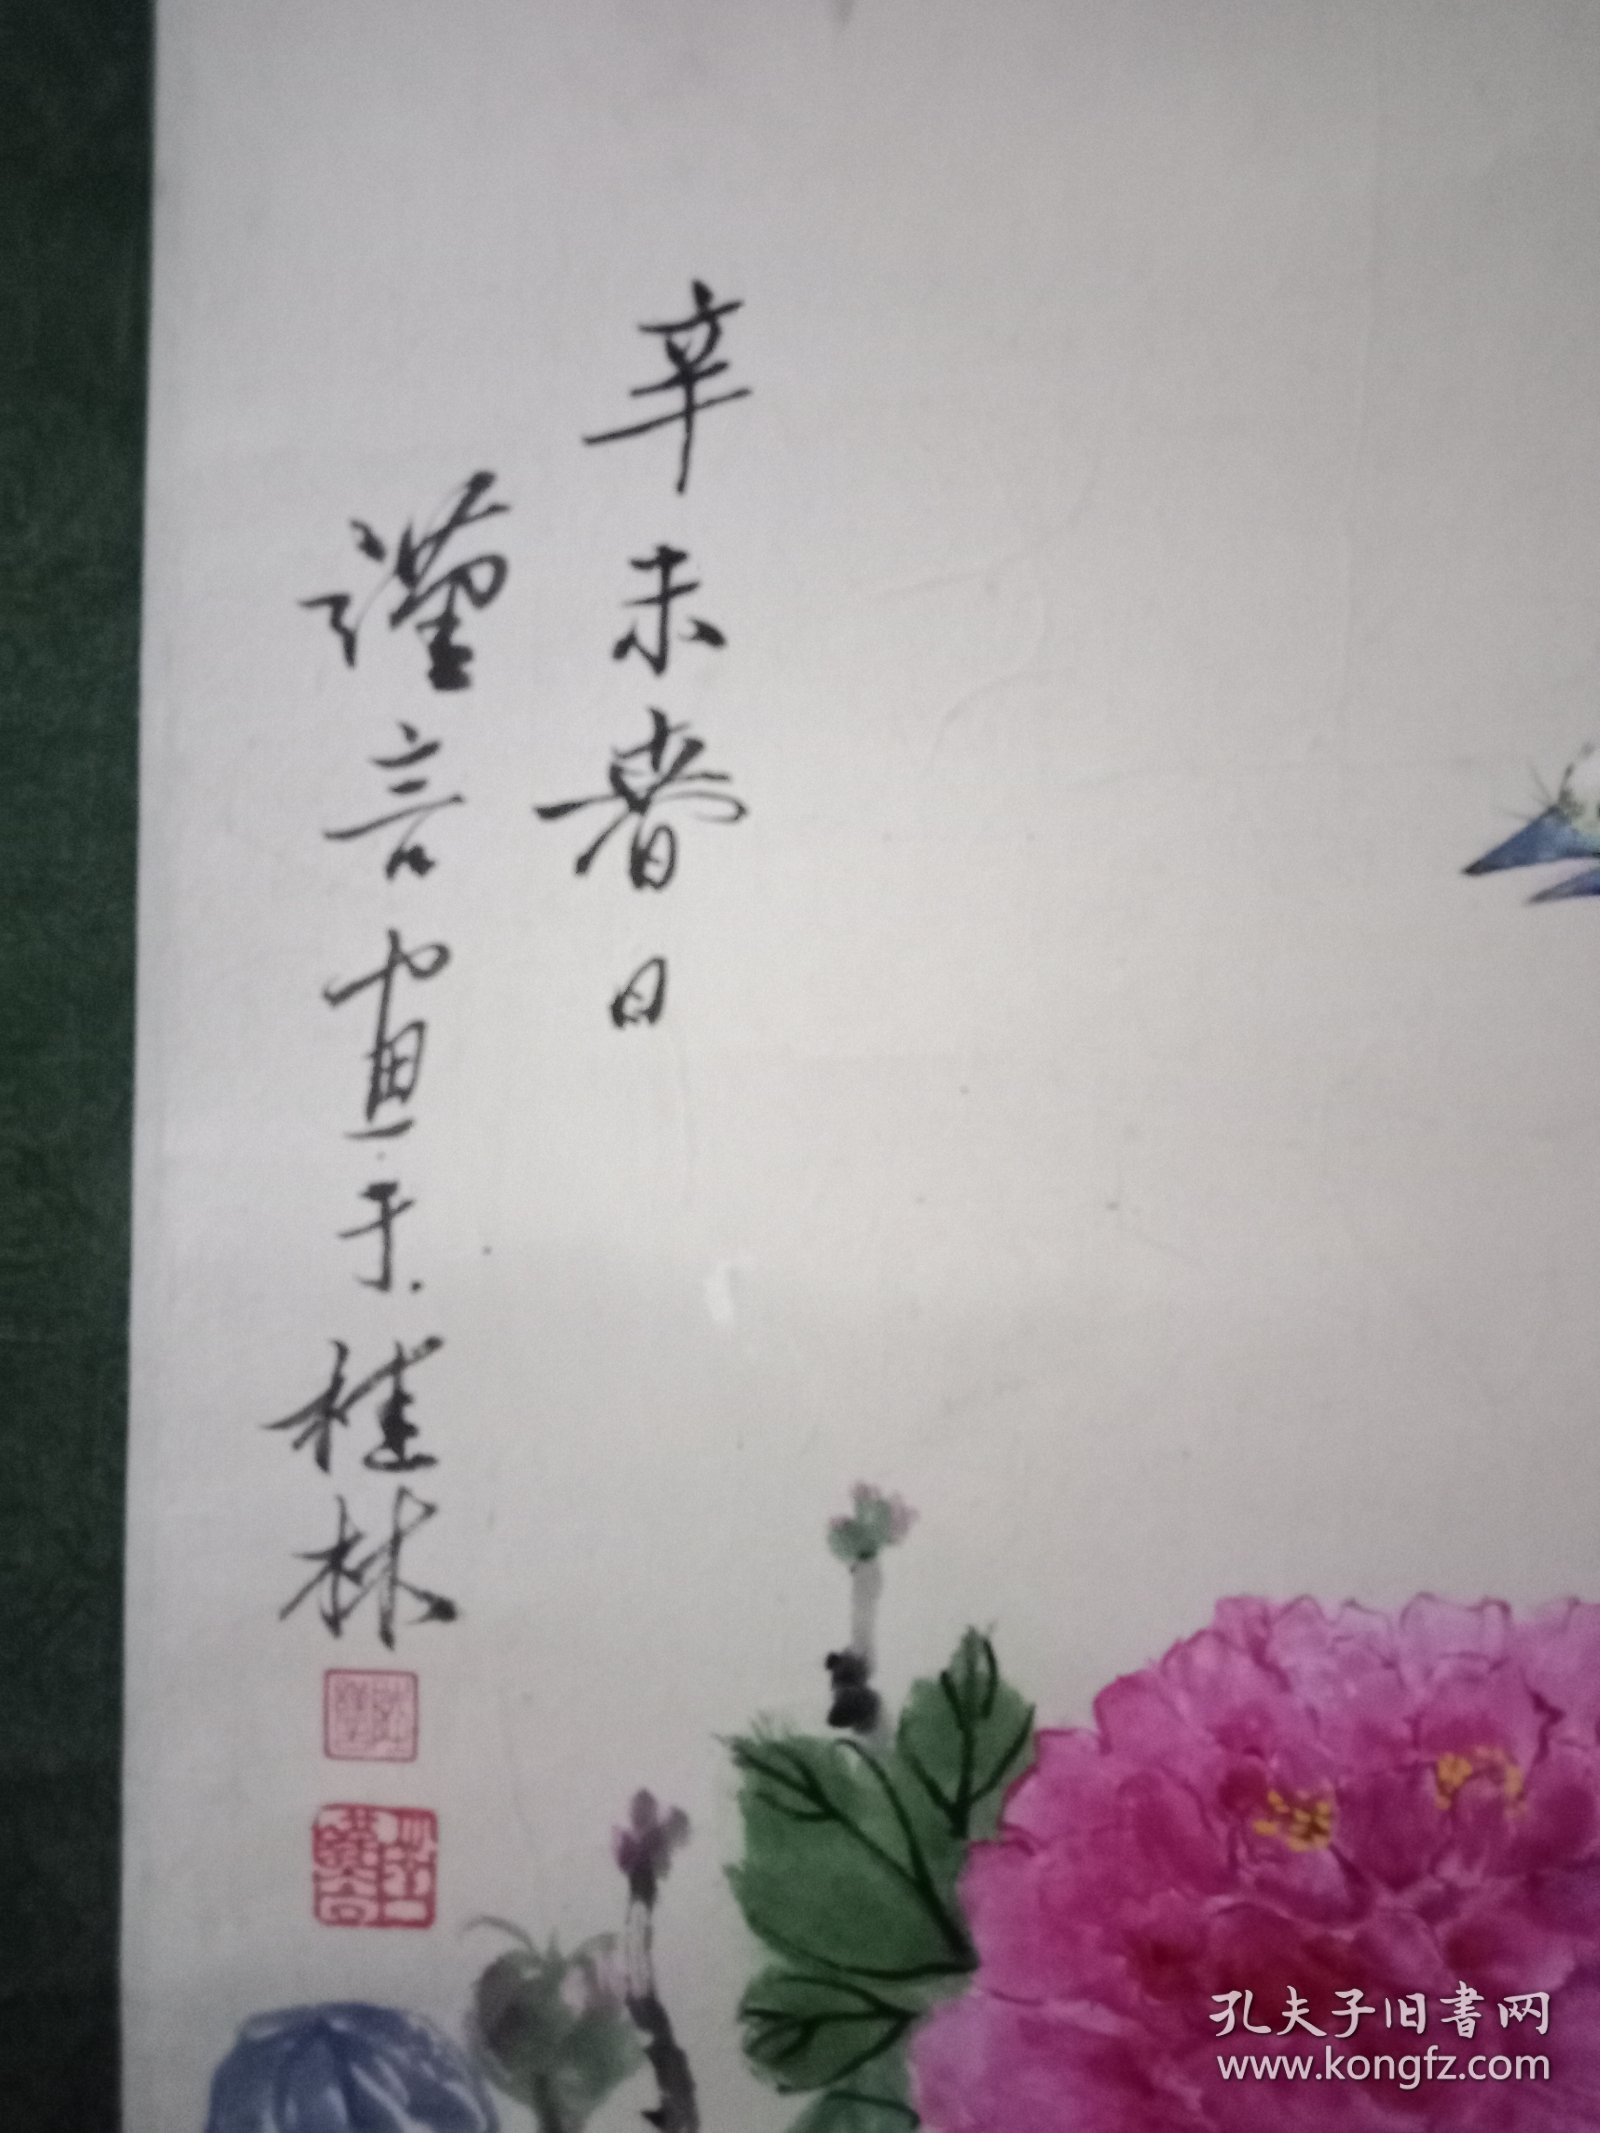 辛未春日
谨言画于桂林
孔夫子旧书网
www.kongfz.com